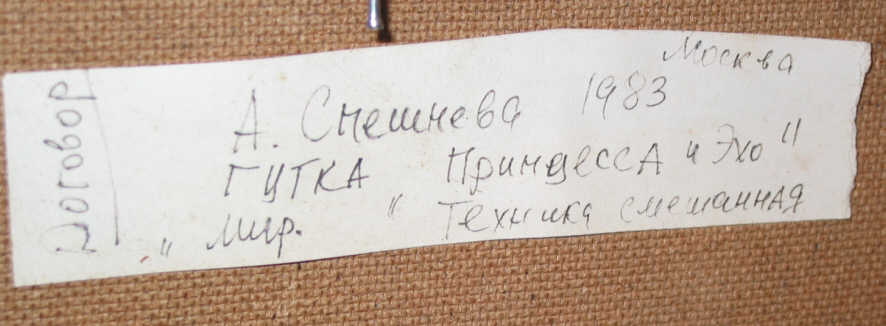 Договор
Москва
А. Смешнева 1983
ГУТКА Принцесса и Эхо"
" Мир. " Техника смешанная